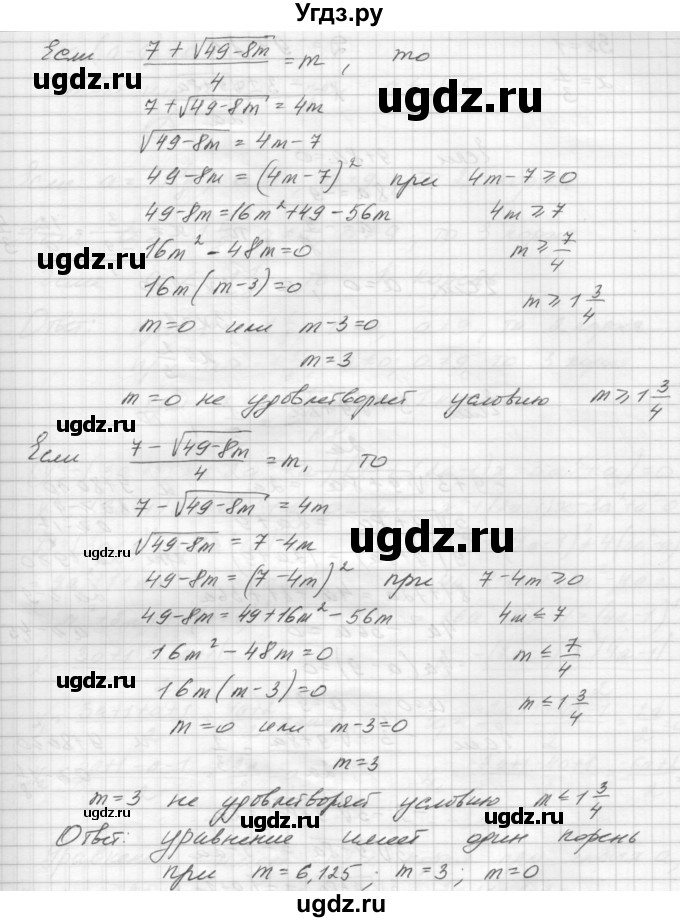 Угдз.ру
Если (7 + √(49-8m))/4 = m, то
7 + √(49-8m) = 4m
ugdz.ru ugdz.ru
√(49-8m) = 4m-7
49-8m = (4m-7)² при 4m-7 ≥ 0
49-8m = 16m² + 49 - 56m 4m ≥ 7
ugdz.ru
16m² - 48m = 0 m ≥ 7/4
16m(m-3) = 0 m ≥ 1 3/4
m = 0 или m-3 = 0
m = 3
ugdz.ru
m = 0 не удовлетворяет условию m ≥ 1 3/4
ugdz.ru
Если (7 - √(49-8m))/4 = m, то
7 - √(49-8m) = 4m
ugdz.ru
√(49-8m) = 7-4m
ugdz.ru
49-8m = (7-4m)² при 7-4m ≥ 0
49-8m = 49 + 16m² - 56m 4m ≤ 7
16m² - 48m = 0 m ≤ 7/4
ugdz.ru
16m(m-3) = 0 m ≤ 1 3/4
m = 0 или m-3 = 0
m = 3
m = 3 не удовлетворяет условию m ≤ 1 3/4
ugdz.ru ugdz.ru ugdz.ru
Ответ: уравнение имеет один корень
при m = 6,125; m = 3; m = 0
ugdz.ru